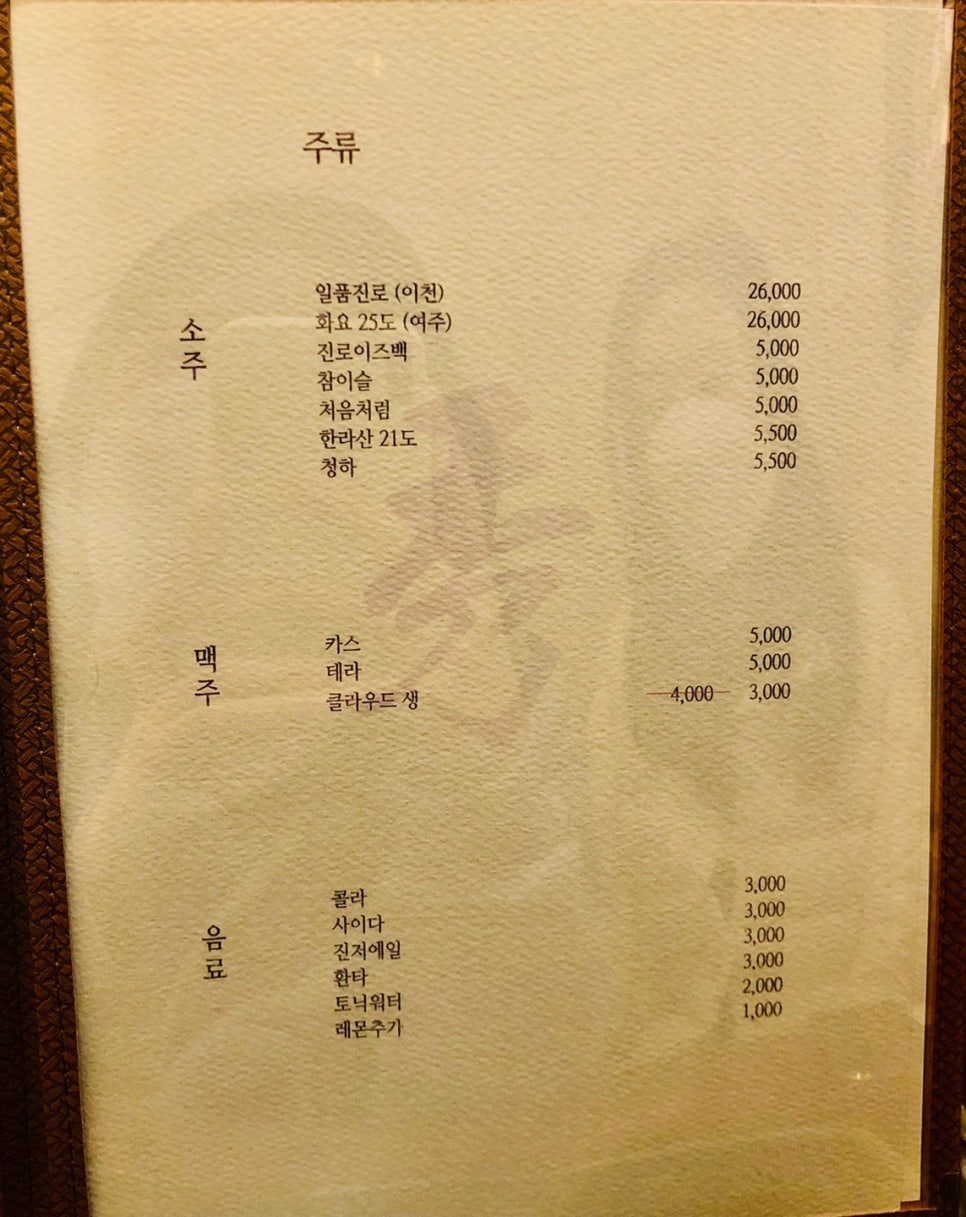 주류
소주
일품진로 (이천) 26,000
화요 25도 (여주) 26,000
진로이즈백 5,000
참이슬 5,000
처음처럼 5,000
한라산 21도 5,500
청하 5,500
맥주
카스 5,000
테라 5,000
클라우드 생 4,000 3,000
음료
콜라 3,000
사이다 3,000
진저에일 3,000
환타 3,000
토닉워터 2,000
레몬추가 1,000